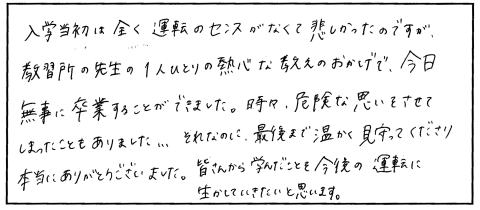 入学当初は全く運転のセンスがなくて悲しかったのですが、
教習所の先生の1人ひとりの熱心な教えのおかげで、今日
無事に卒業することができました。時々、危険な思いをさせて
しまったこともありました… それなのに、最後まで温かく見守ってくださり
本当にありがとうございました。皆さんから学んだことを今後の運転に
生かしていきたいと思います。